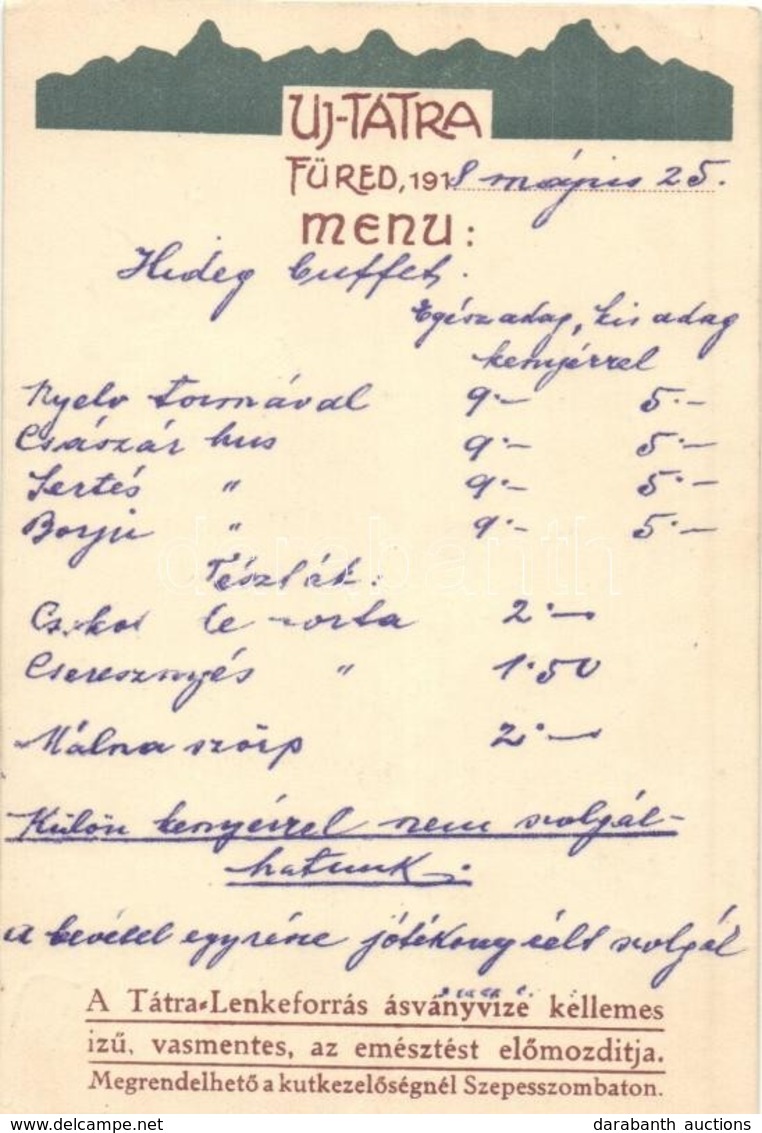 UJ-TÁTRA
FÜRED, 1918 május 25.
MENU:
Hideg buffet.
Egész adag, kis adag
kenyérrel
Nyelv tormával 9.- 5.-
Császár hus 9.- 5.-
Sertés " 9.- 5.-
Borju " 9.- 5.-
Tészták:
torta 2.-
Cseresznyés " 1.50
Málna szörp 2.-
Külön kenyérrel nem szolgál-
hatunk.
A bevétel egyrésze jótékony célt szolgál
A Tátra-Lenkeforrás ásványvize kellemes
izű, vasmentes, az emésztést előmozditja.
Megrendelhető a kutkezelőségnél Szepesszombaton.
darabanth
darabanth auctions